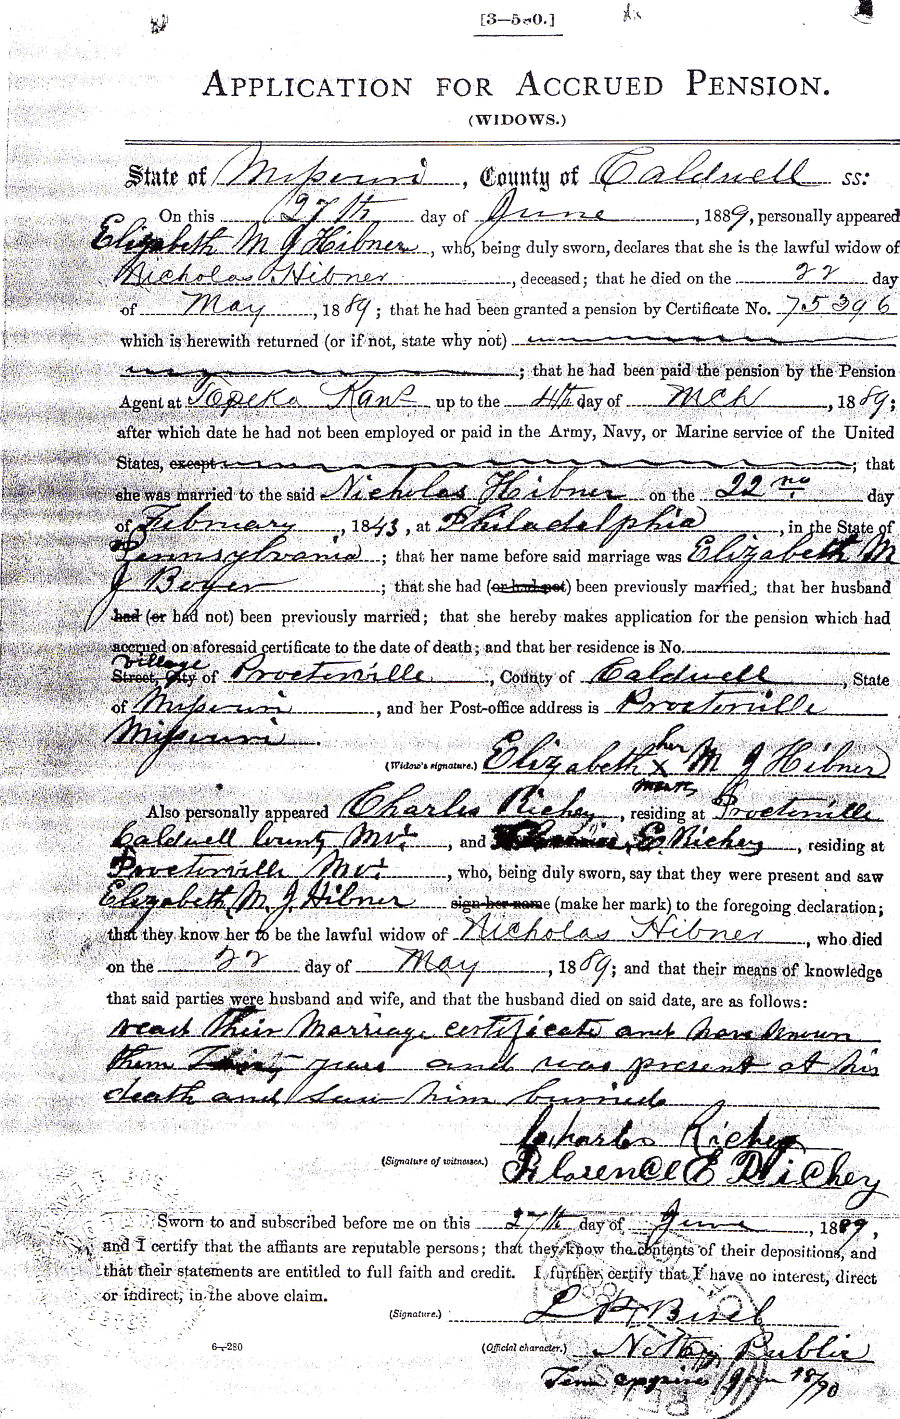 [3—580.]
APPLICATION FOR ACCRUED PENSION.
(WIDOWS.)
State of Missouri, County of Caldwell ss:
On this 27th day of June, 1889, personally appeared
Elizabeth M J Hibner, who, being duly sworn, declares that she is the lawful widow of
Nicholas Hibner, deceased; that he died on the 22 day
of May, 1889; that he had been granted a pension by Certificate No. 75396
which is herewith returned (or if not, state why not)
; that he had been paid the pension by the Pension
Agent at Topeka Kans up to the 4th day of Mch, 1889;
after which date he had not been employed or paid in the Army, Navy, or Marine service of the United
States, except ; that
she was married to the said Nicholas Hibner on the 22nd day
of February, 1843, at Philadelphia, in the State of
Pennsylvania; that her name before said marriage was Elizabeth M
J Boyer; that she had (or had not) been previously married; that her husband
had (or had not) been previously married; that she hereby makes application for the pension which had
accrued on aforesaid certificate to the date of death; and that her residence is No.
village
Street, City of Proctorville, County of Caldwell, State
of Missouri, and her Post-office address is Proctorville
Missouri.
her
(Widow's signature.) Elizabeth X M J Hibner
mark
Also personally appeared Charles Richey, residing at Proctorville
Caldwell County Mo., and E Richey, residing at
Proctorville Mo., who, being duly sworn, say that they were present and saw
Elizabeth M. J. Hibner sign her name (make her mark) to the foregoing declaration;
that they know her to be the lawful widow of Nicholas Hibner, who died
on the 22 day of May, 1889; and that their means of knowledge
that said parties were husband and wife, and that the husband died on said date, are as follows:
read their Marriage certificate and have known
them years and was present at his
death and saw him buried
Charles Richey
(Signature of witnesses.) Florence E Richey
Sworn to and subscribed before me on this 27th day of June, 1889,
and I certify that the affiants are reputable persons; that they know the contents of their depositions, and
that their statements are entitled to full faith and credit. I further certify that I have no interest, direct
or indirect, in the above claim.
(Signature.)
6—280 (Official character.) Notary Public
Term expires Jan 18/90